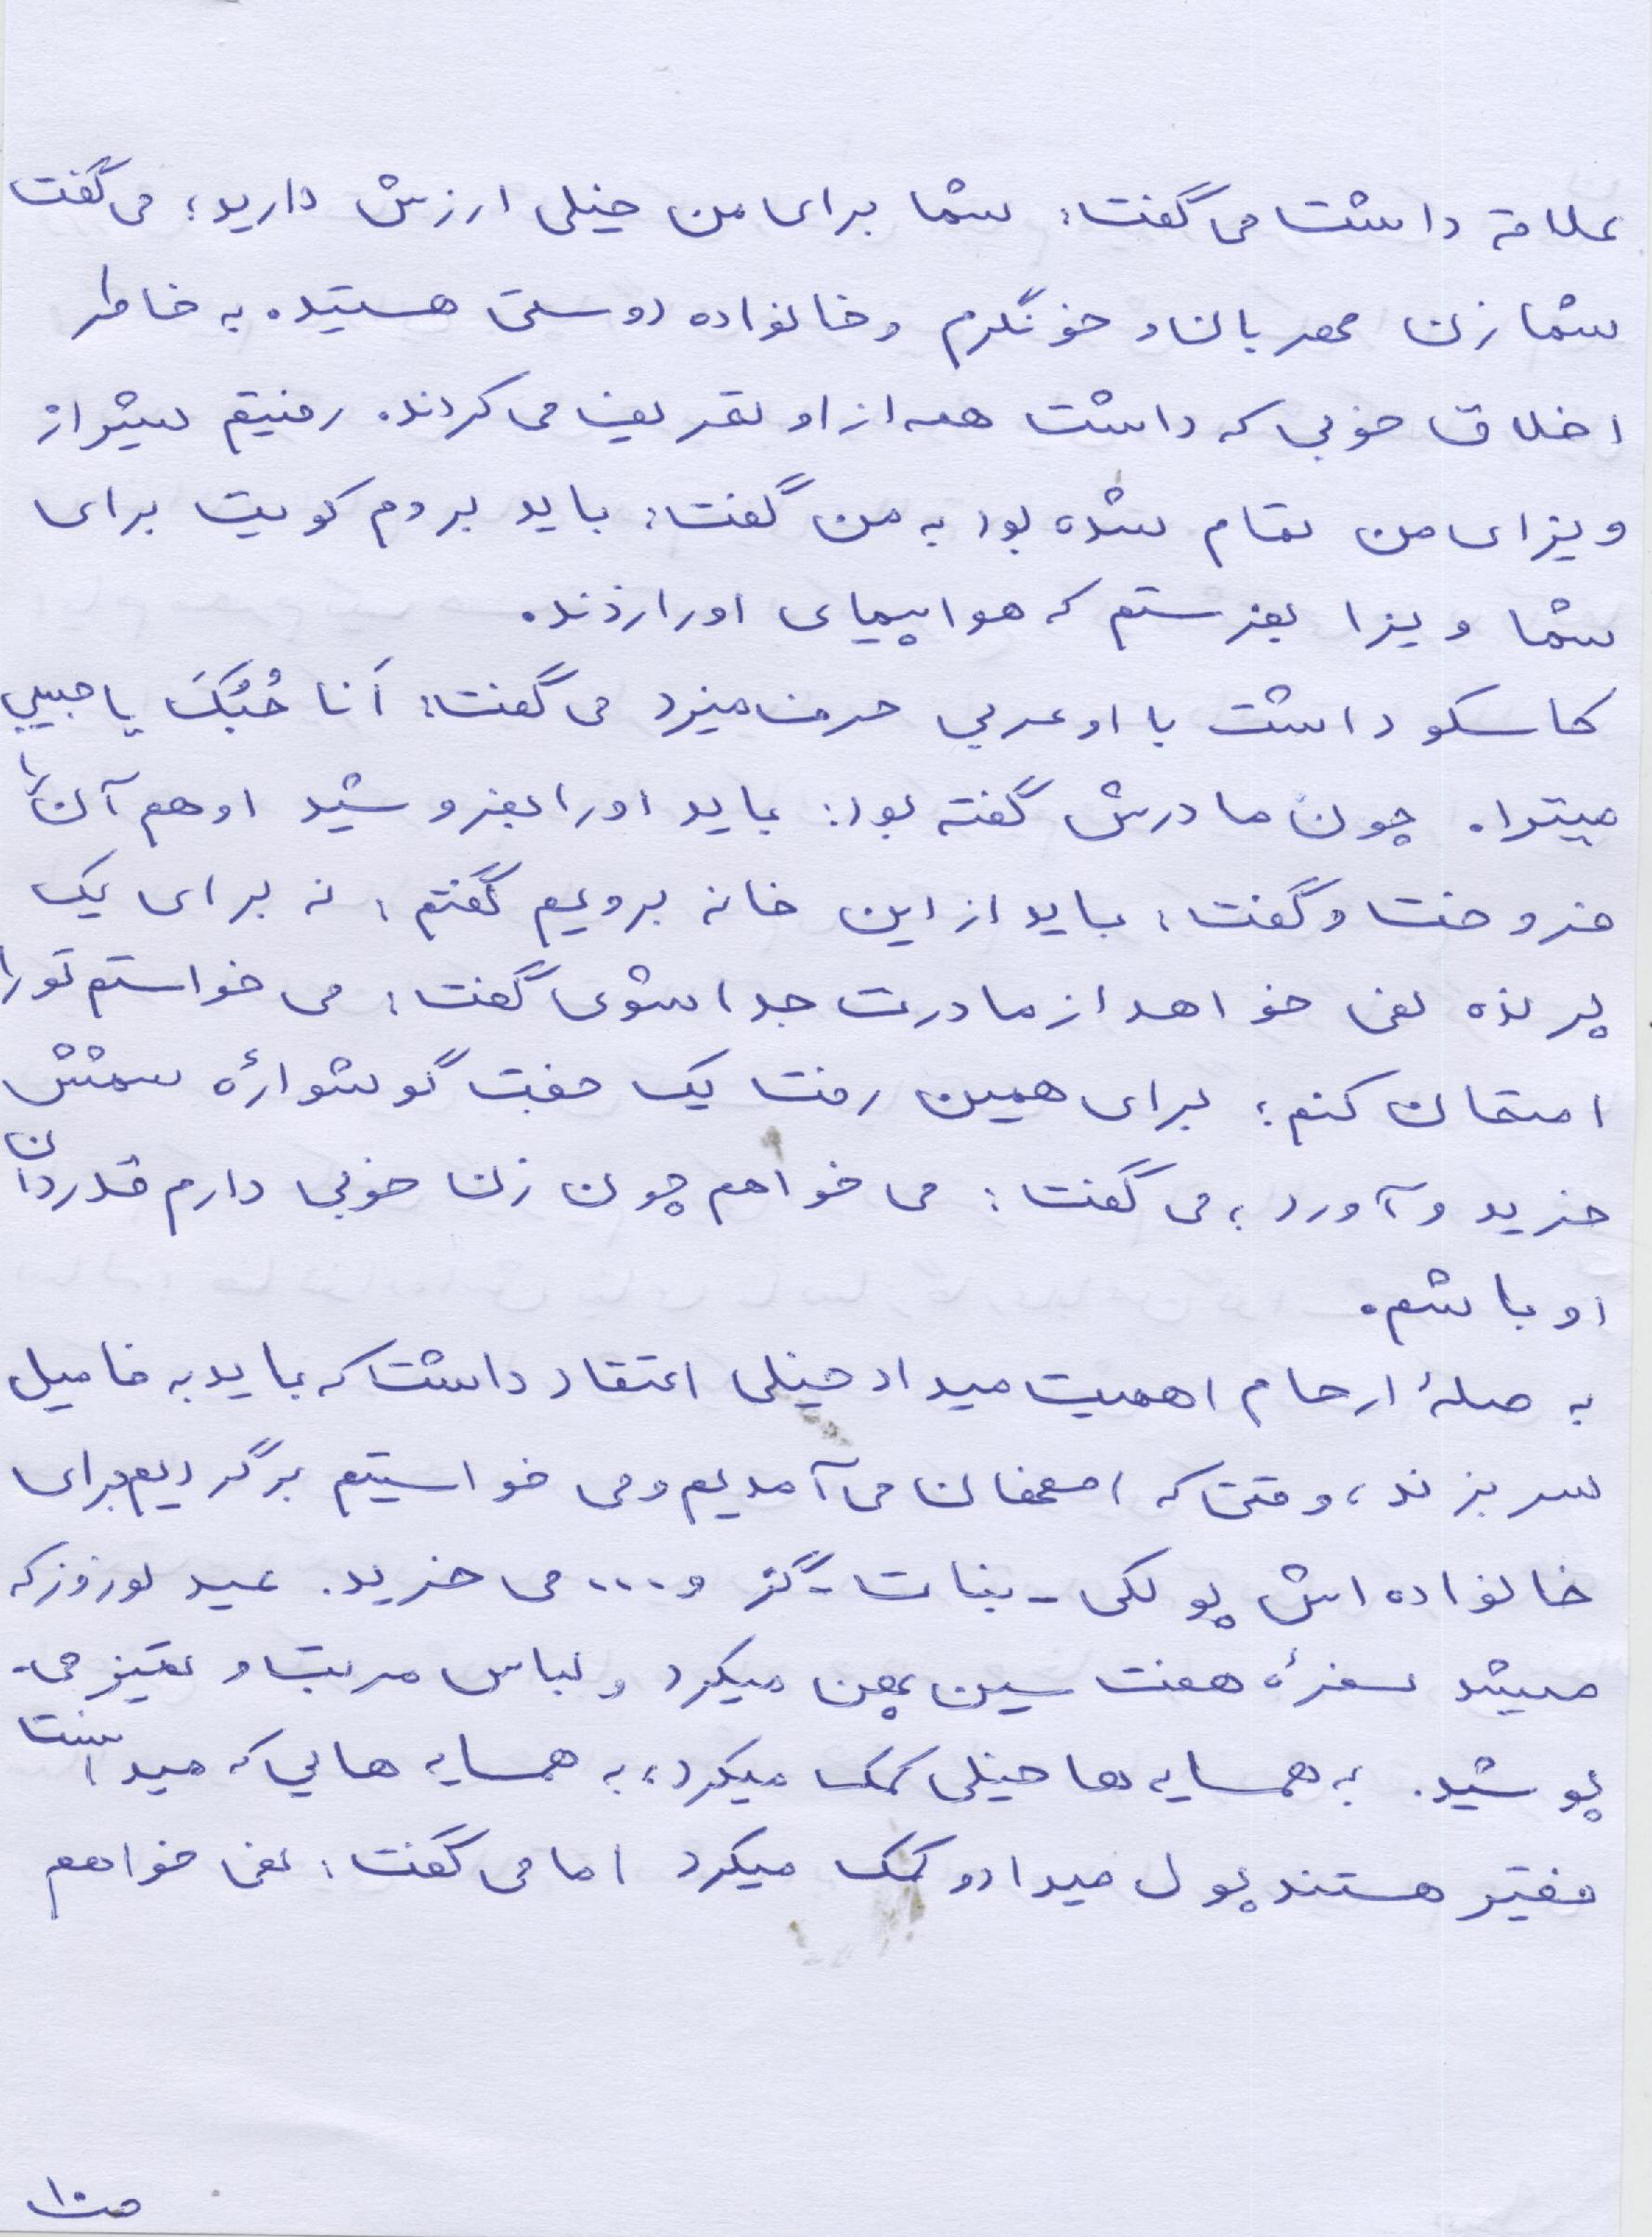 علاقه داشت می گفت: شما برای من خیلی ارزش دارید؛ می گفت
شما زن مهربان و خونگرم و خانواده دوستی هستید. به خاطر
اخلاق خوبی که داشت همه از او تعریف می کردند. رفتیم شیراز
ویزای من تمام شده بود به من گفت: باید بروم کویت برای
شما ویزا بفرستم که هواپیمای او را زدند.
کاسکو داشت با او عربی حرف میزد می گفت: اَنا حُبُّکَ یا حبیبی
میترا. چون مادرش گفته بود: باید او را بفروشید او هم آن را
فروخت و گفت: باید از این خانه برویم گفتم: نه برای یک
پرنده نمی خواهد از مادرت جدا شوی گفت: می خواستم تو را
امتحان کنم؛ برای همین رفت یک جفت گوشوارهٔ شمش
خرید و آورد؛ می گفت: می خواهم چون زن خوبی دارم قدردان
او باشم.
به صلهٔ ارحام اهمیت میداد خیلی اعتقاد داشت که باید به فامیل
سر بزند، وقتی که اصفهان می آمدیم و می خواستیم برگردیم برای
خانواده اش پولکی - نبات - گز و .... می خرید. عید نوروز که
میشد سفرهٔ هفت سین پهن میکرد و لباس مرتب و تمیز می-
پوشید. به همسایه ها خیلی کمک میکرد، به همسایه هایی که میدانست
فقیر هستند پول میداد و کمک میکرد اما می گفت: نمی خواهم
ص۱۰